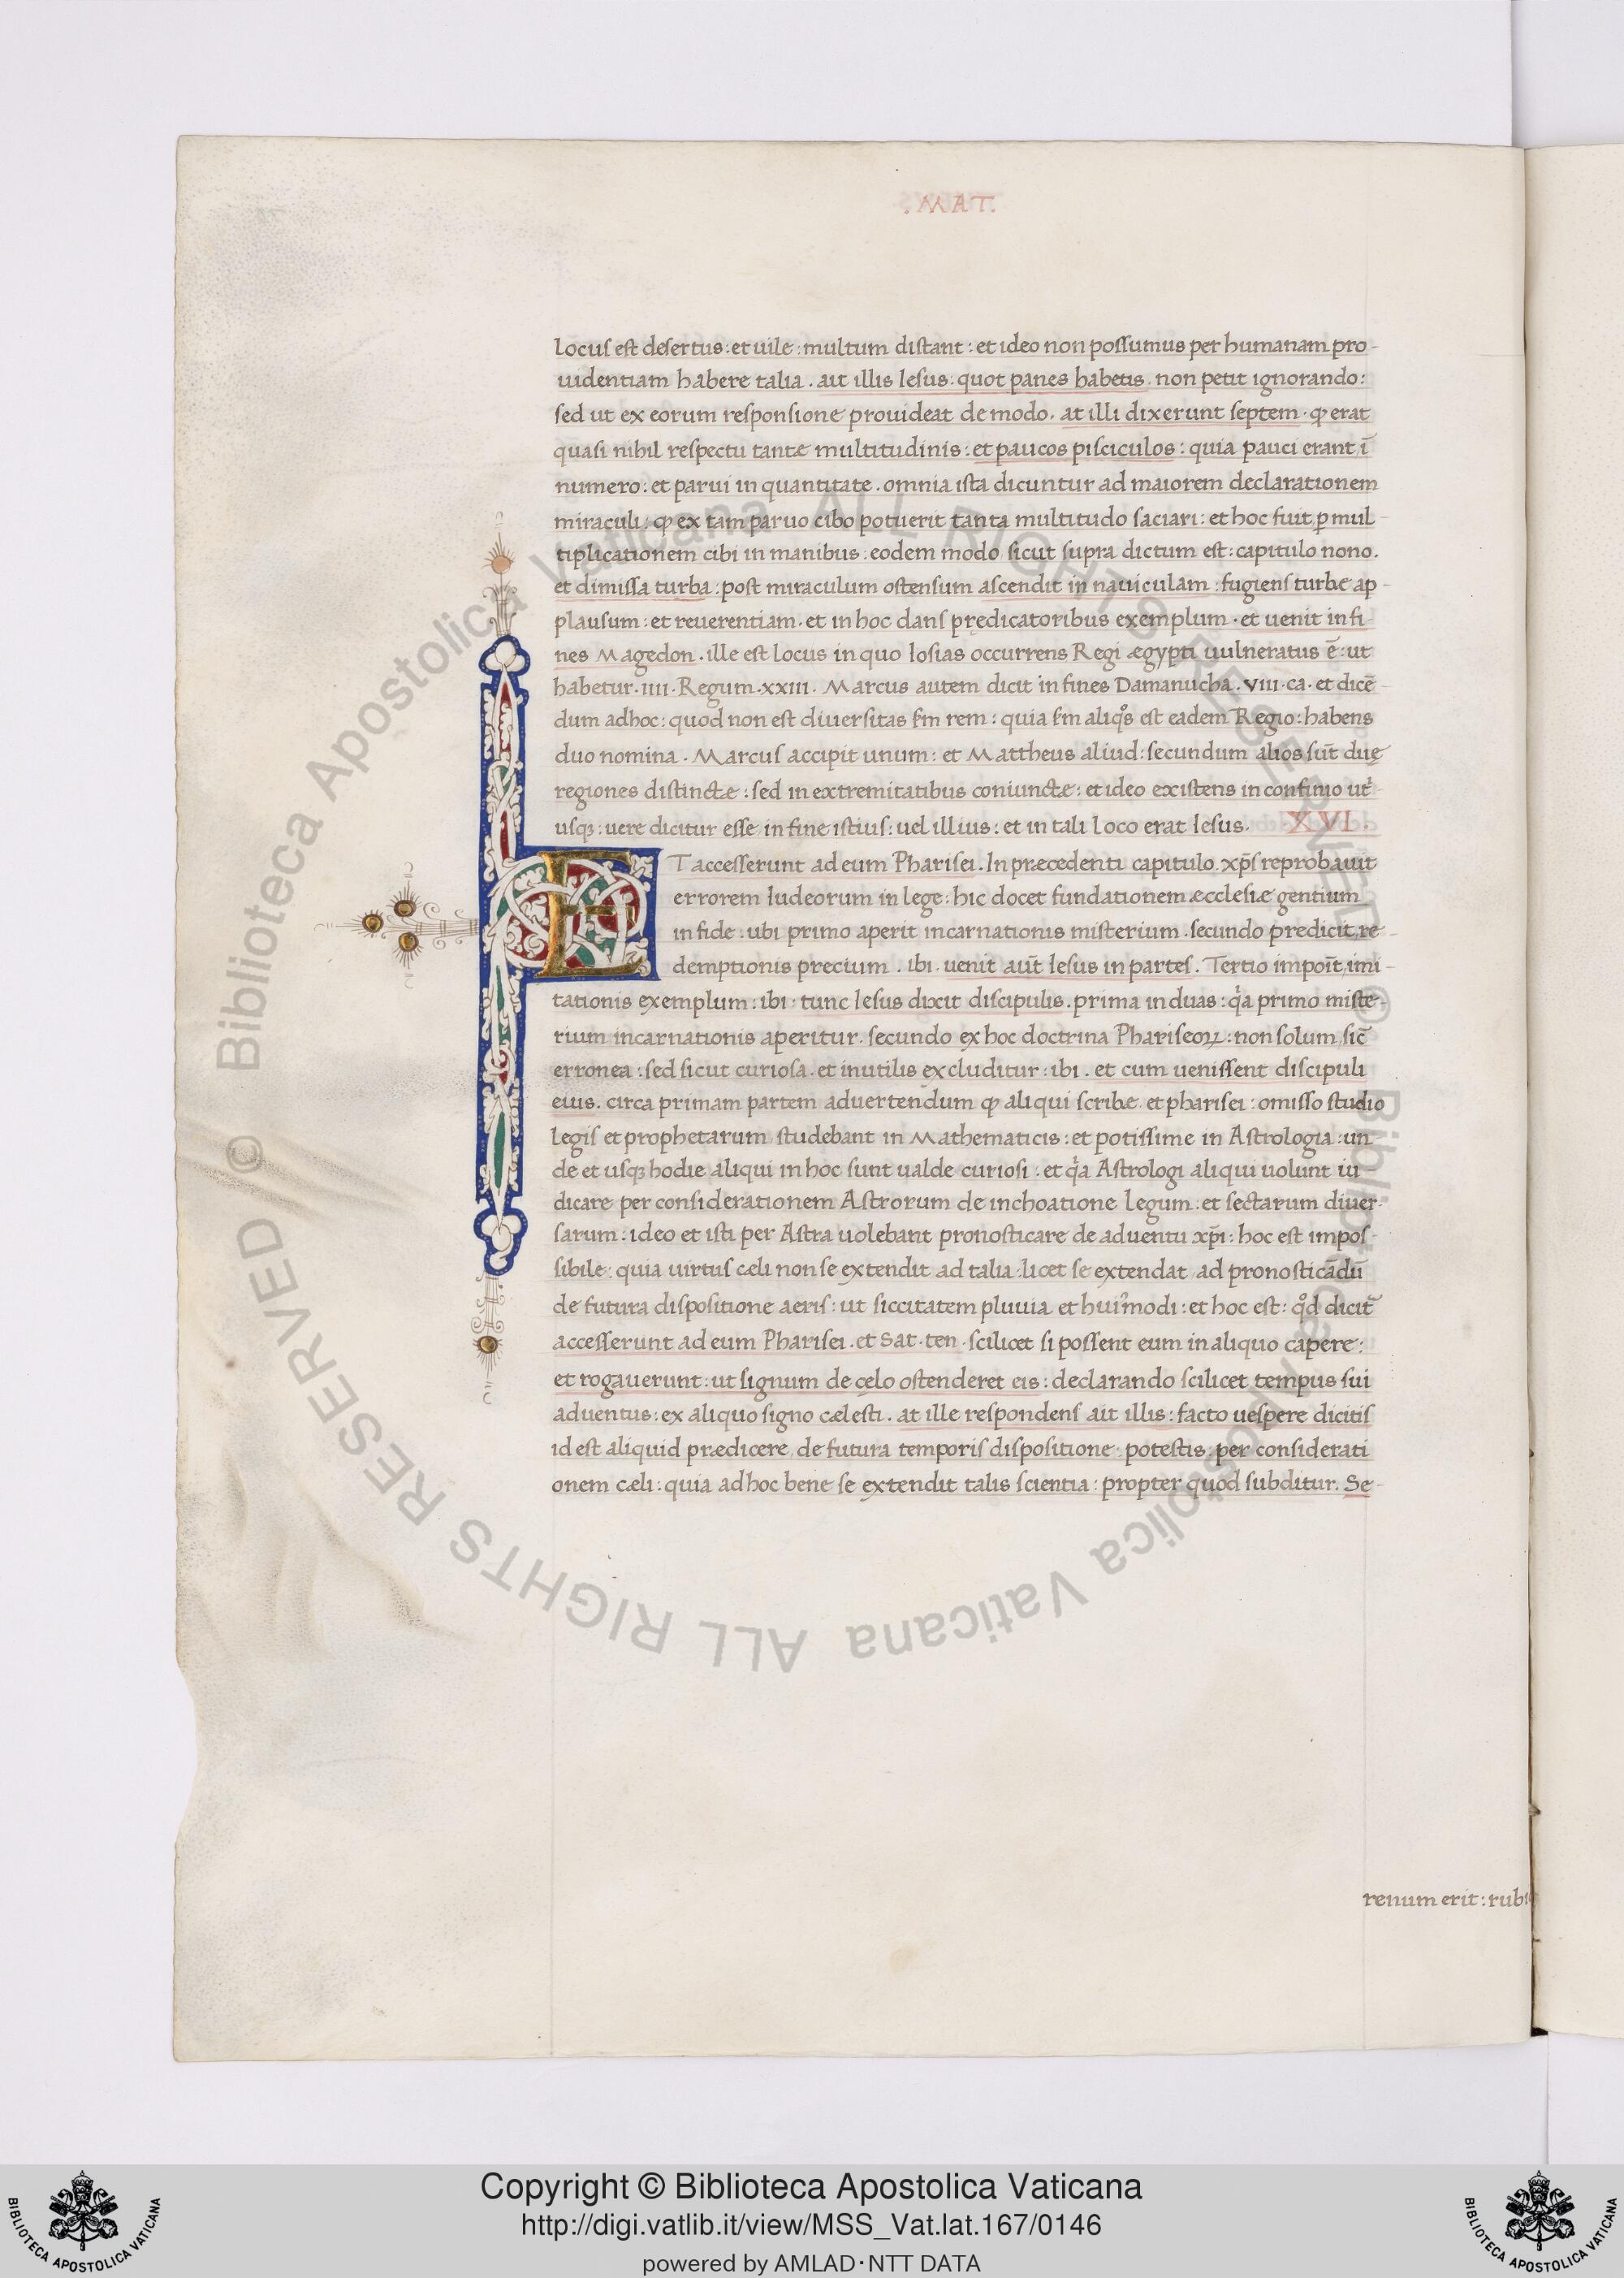 .MAT.
locus est desertus: et uile: multum distant: et ideo non possumus per humanam pro-
uidentiam habere talia. ait illis Iesus: quot panes habetis. non petit ignorando:
sed ut ex eorum responsione prouideat de modo. at illi dixerunt septem. ꝙ erat
quasi nihil respectu tantæ multitudinis: et paucos pisciculos: quia pauci erant ī
numero: et parui in quantitate. omnia ista dicuntur ad maiorem declarationem
miraculi: ꝙ ex tam paruo cibo potuerit tanta multitudo saciari: et hoc fuit ꝑ mul-
tiplicationem cibi in manibus: eodem modo sicut supra dictum est: capitulo nono.
et dimissa turba: post miraculum ostensum ascendit in nauiculam: fugiens turbæ ap-
plausum: et reuerentiam. et in hoc dans prędicatoribus exemplum. et uenit in fi-
nes Magedon. ille est locus in quo Iosias occurrens Regi ægypti uulneratus ē: ut
habetur. IIII. Regum. XXIII. Marcus autem dicit in fines Damanucha. VIII. ca. et dicē-
dum ad hoc: quod non est diuersitas ẜm rem: quia ẜm aliqͦs est eadem Regio: habens
duo nomina. Marcus accipit unum: et Mattheus aliud: secundum alios sūt duę
regiones distinctæ: sed in extremitatibus coniunctæ: et ideo existens in confinio ut͛-
usqꝫ: uere dicitur esse in fine istius: uel illius: et in tali loco erat Iesus. XVI.
ET accesserunt ad eum Pharisei. In præcedenti capitulo. xp̄s reprobauit
errorem Iudeorum in lege: hic docet fundationem æcclesiæ gentium
in fide: ubi primo aperit incarnationis misterium. secundo predicit re-
demptionis precium. ibi. uenit aut̄ Iesus in partes. Tertio impoīt imi-
tationis exemplum: ibi: tunc Iesus dixit discipulis. prima in duas: qͥa primo miste-
rium incarnationis aperitur. secundo ex hoc doctrina Phariseoꝝ: non solum sic̄
erronea: sed sicut curiosa. et inutilis excluditur: ibi. et cum uenissent discipuli
eius. circa primam partem aduertendum ꝙ aliqui scribæ et pharisei: omisso studio
legis et prophetarum studebant in Mathematicis: et potissime in Astrologia: un-
de et usqꝫ hodie aliqui in hoc sunt ualde curiosi: et qͥa Astrologi aliqui uolunt iu-
dicare per considerationem Astrorum de inchoatione legum: et sectarum diuer-
sarum: ideo et isti per Astra uolebant pronosticare de aduentu xp̄i: hoc est impos-
sibile: quia uirtus cæli non se extendit ad talia: licet se extendat ad pronosticādū
de futura dispositione aeris: ut siccitatem pluuia et huiꝰmodi: et hoc est: qͦd dicit̄
accesserunt ad eum Pharisei. et Sat. ten. scilicet si possent eum in aliquo capere:
et rogauerunt: ut signum de cęlo ostenderet eis: declarando scilicet tempus sui
aduentus: ex aliquo signo cælesti. at ille respondens ait illis: facto uespere dicitis
id est aliquid prædicere de futura temporis dispositione potestis: per considerati
onem cæli: quia ad hoc bene se extendit talis scientia: propter quod subditur. Se-
renum erit: rubi
© Biblioteca Apostolica Vaticana ALL RIGHTS RESERVED © Biblioteca Apostolica Vaticana ALL RIGHTS RESERVED
Copyright © Biblioteca Apostolica Vaticana
http://digi.vatlib.it/view/MSS_Vat.lat.167/0146
powered by AMLAD·NTT DATA
BIBLIOTECA APOSTOLICA VATICANA
BIBLIOTECA APOSTOLICA VATICANA